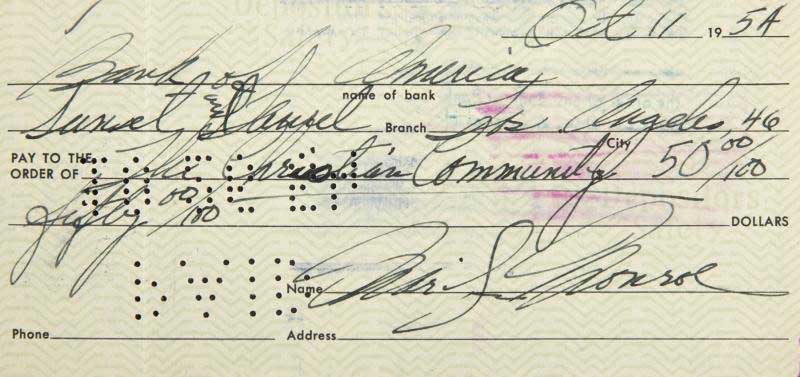 Oct 11 1954
Bank of America
name of bank
Sunset Laurel Branch Los Angeles 46
City
PAY TO THE
ORDER OF The Christian Community 50 00/100
fifty 00/100 DOLLARS
Name Marilyn Monroe
Phone Address